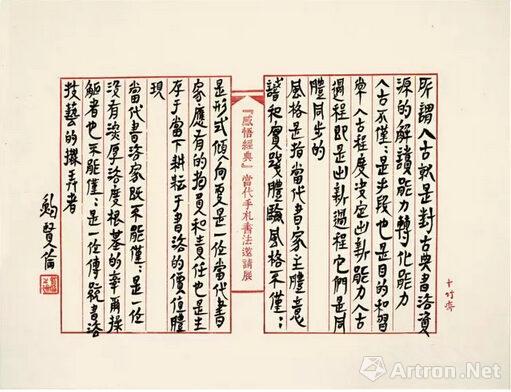 十竹齋
所謂入古就是對古典書法資
源的解讀能力轉化能力
入古不僅〻是手段也是目的和習
常入古程度決定出新能力入古
過程即是出新過程它們是同
體同步的
風格是指當代書家主體意
識和實踐體驗風格不僅〻
『感悟經典』當代手札書法邀請展
是形式傾向更是一位當代書
家應有的擔負和責任也是生
存于當下耕耘于書法的價值體
現
當代書法家既不能僅〻是一位
沒有深厚法度根基的率爾操
觚者也不能僅〻是一位傳蹤書法
技藝的撥弄者
鮑賢倫
雅昌藝術網
Artron.Net